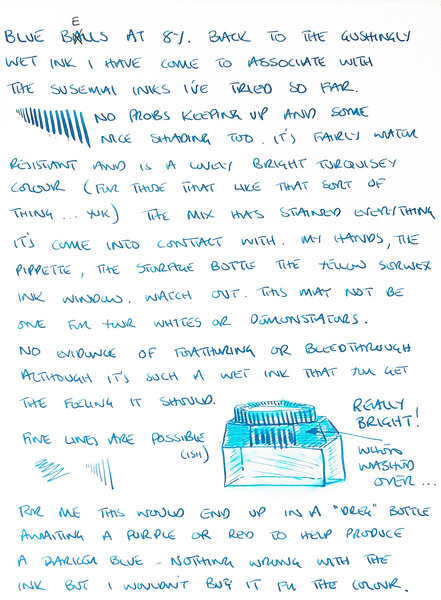 BLUE BELLS AT 8%. BACK TO THE GUSHINGLY
WET INK I HAVE COME TO ASSOCIATE WITH
THE SUSEMAI INKS I'VE TRIED SO FAR.
NO PROBS KEEPING UP AND SOME
NICE SHADING TOO. IT'S FAIRLY WATER
RESISTANT AND IS A LOVELY BRIGHT TURQUISEY
COLOUR (FOR THOSE THAT LIKE THAT SORT OF
THING... YUK) THE MIX HAS STAINED EVERYTHING
IT'S COME INTO CONTACT WITH. MY HANDS, THE
PIPPETTE, THE STORAGE BOTTLE THE YELLOW
INK WINDOW. WATCH OUT. THIS MAY NOT BE
ONE FOR YOUR WHITES OR DEMONSTATORS.
NO EVIDENCE OF FEATHURING OR BLEEDTHROUGH
ALTHOUGH IT'S SUCH A WET INK THAT YOU GET
THE FEELING IT SHOULD.
REALLY
BRIGHT!
FINE LINES ARE POSSIBLE
(ISH)
WHITE
WASHED
OVER ...
FOR ME THIS WOULD END UP IN A "DREG" BOTTLE
AWAITING A PURPLE OR RED TO HELP PRODUCE
A DARKER BLUE - NOTHING WRONG WITH THE
INK BUT I WOULDN'T BUY IT FOR THE COLOUR.